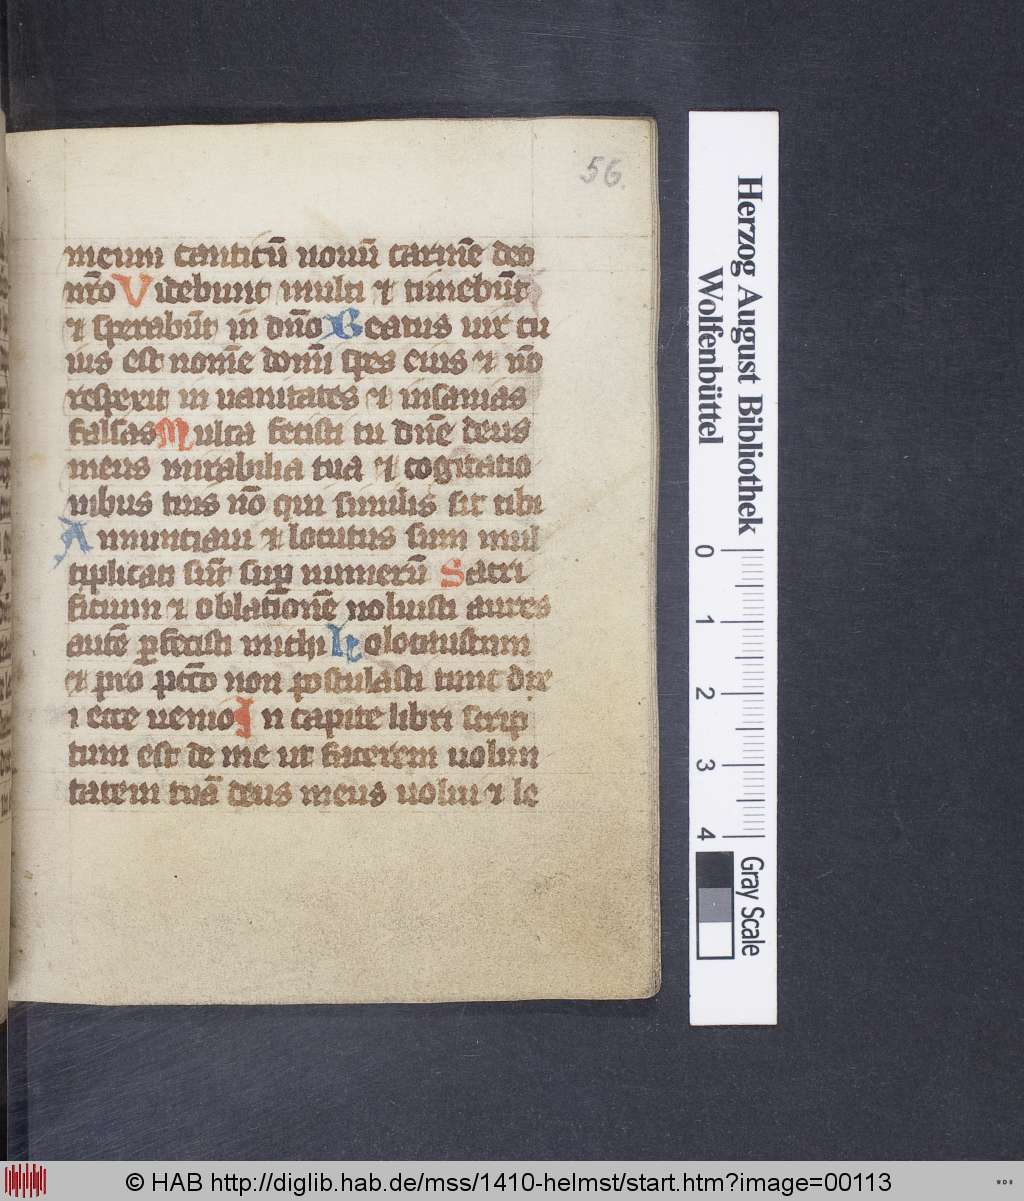 56.
meum canticū nouū carmē deo
nr̄o Videbunt multi et timebūt
et sperabūt in dn̄o Beatus uir cu
ius est nomē domī spes eius et nō
respexit in uanitates et insanias
falsas Multa fecisti tu dn̄e deus
meus mirabilia tua et cogitatio
nibus tuis nō qui similis sit tibi
Annunciaui et locutus sum mul
tiplicati sūt suꝑ numerū Sacri
ficium et oblationē noluisti aures
autē ꝑfecisti michi Holocaustum
et pro pcc̄o non postulasti tunc dix
i ecce uenio In capite libri scrip
tum est de me ut facerem uolun
tatem tuā deus meus uolui et le
Herzog August Bibliothek
Wolfenbüttel
0 1 2 3 4
Gray Scale
© HAB http://diglib.hab.de/mss/1410-helmst/start.htm?image=00113